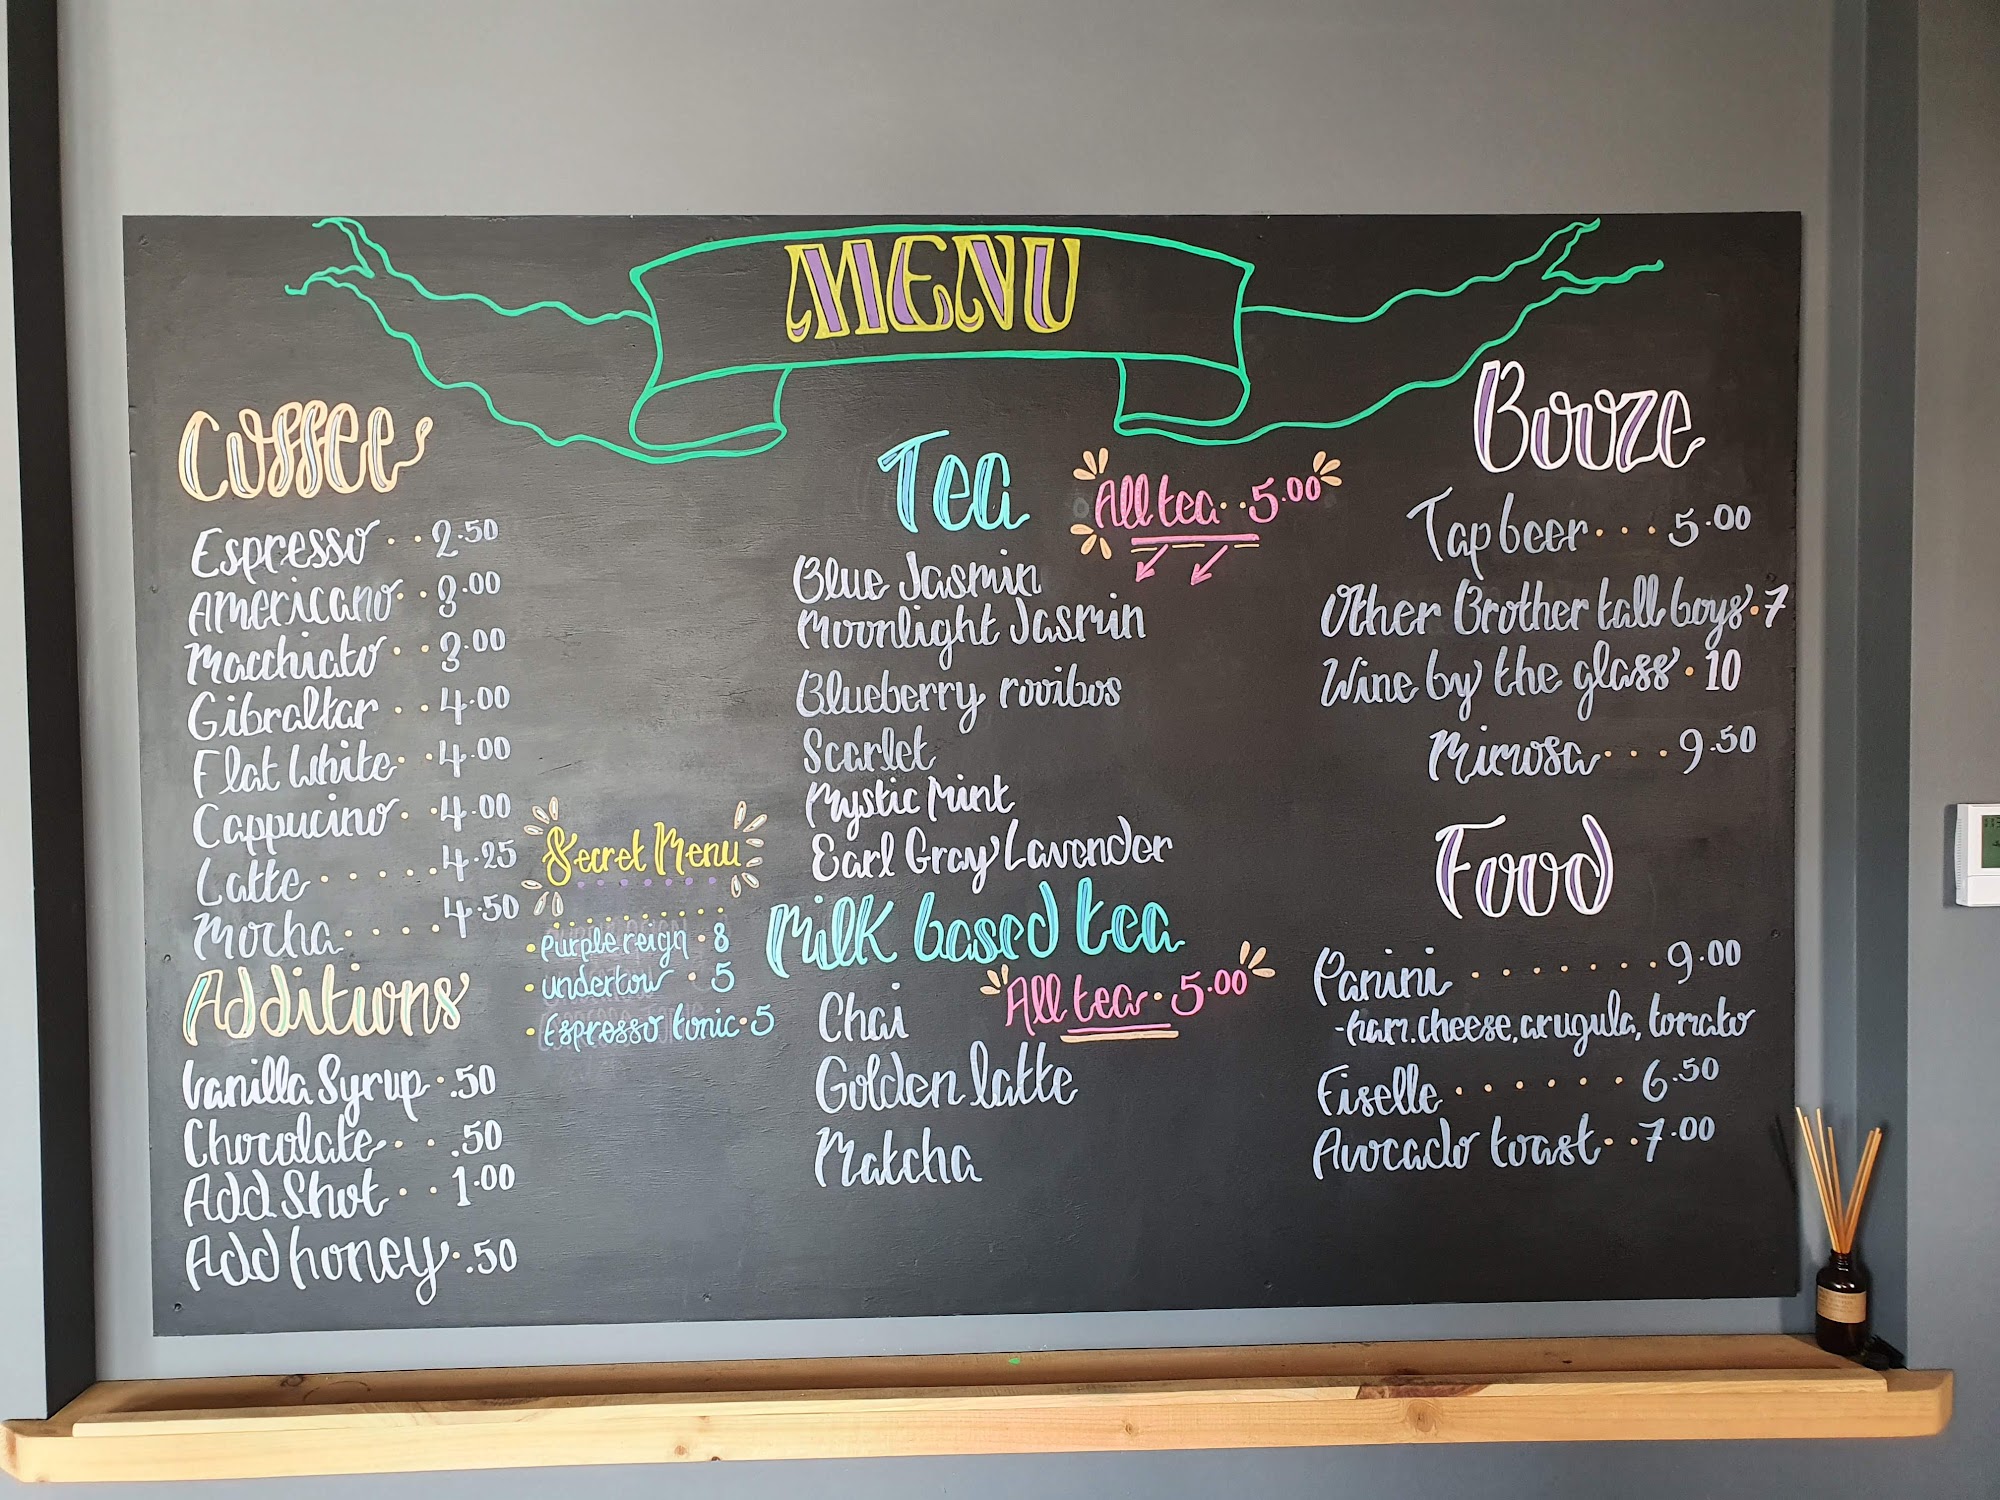 MENU
Coffee
Espresso . . 2.50
Americano . . 3.00
Macchiato . . 3.00
Gibraltar . . 4.00
Flat White . . 4.00
Cappucino . . 4.00
Latte . . . . . 4.25
Mocha . . . . . 4.50
Additions
Vanilla Syrup . .50
Chocolate . . .50
Add Shot . . 1.00
Add honey . .50
Secret Menu
. purple reign . 8
. undertow . 5
. Espresso tonic . 5
Tea
All tea . . 5.00
Blue Jasmin
Moonlight Jasmin
Blueberry rooibos
Scarlet
Mystic Mint
Earl Gray Lavender
Milk based tea
All tea . 5.00
Chai
Golden latte
Matcha
Booze
Tap beer . . . 5.00
Other Brother tall boys . 7
Wine by the glass . 10
Mimosa . . . 9.50
Food
Panini . . . . . . . 9.00
-ham, cheese, arugula, tomato
Fiselle . . . . . . 6.50
Avocado toast . . 7.00